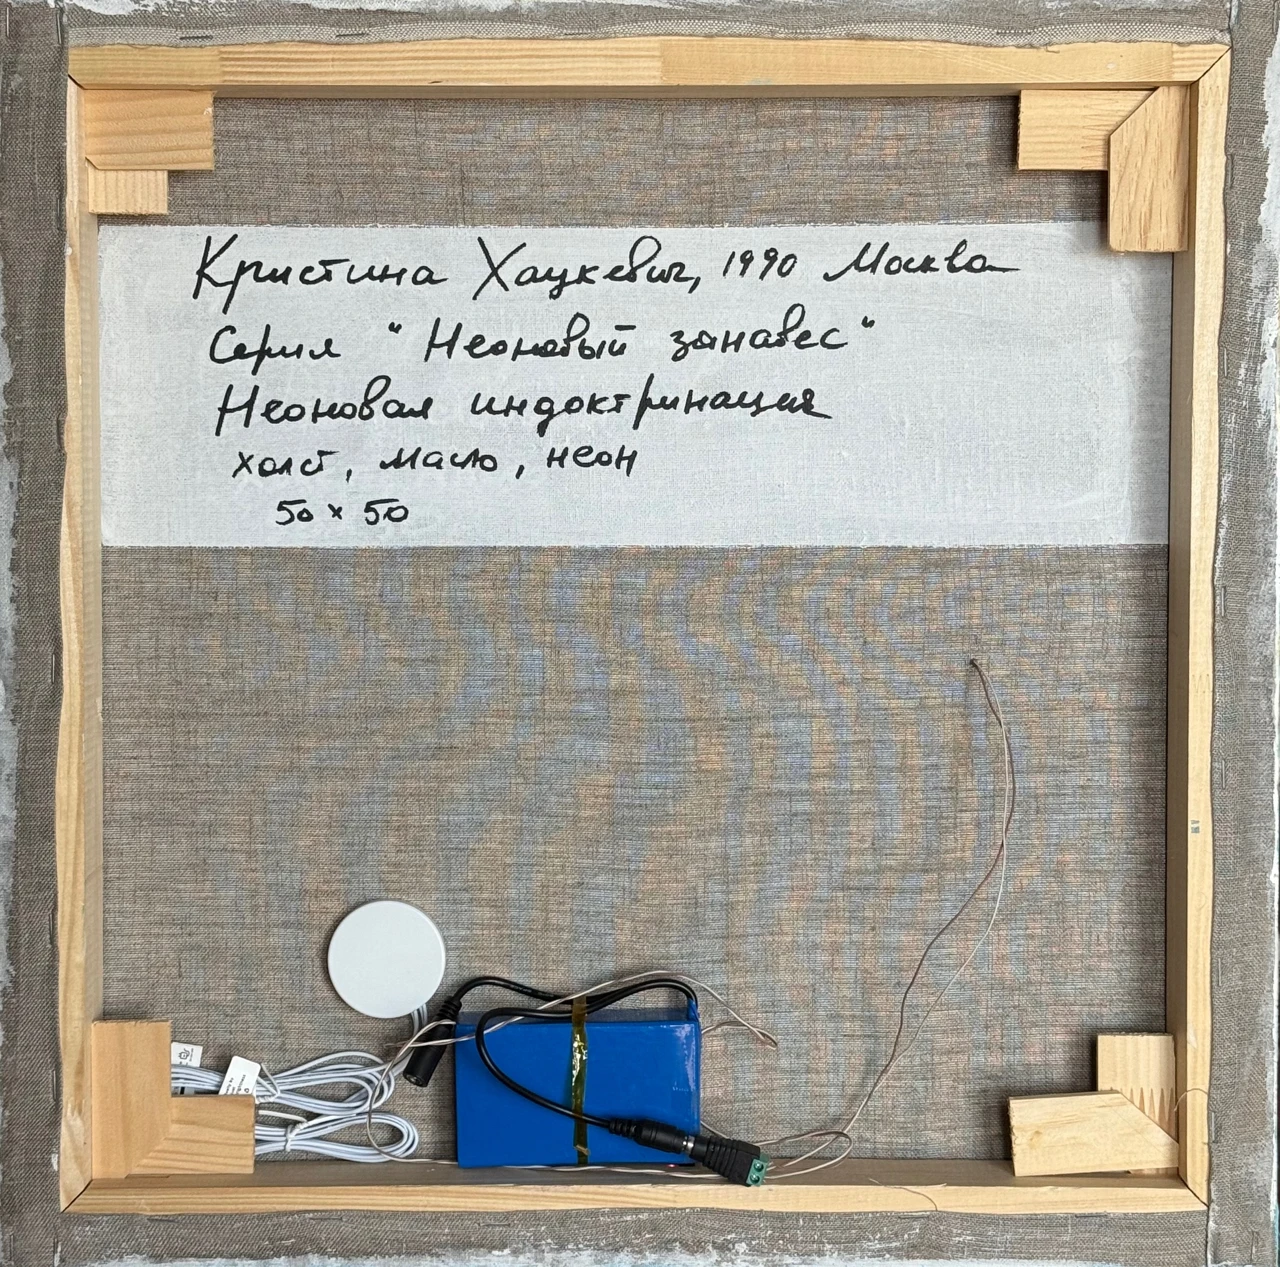 Кристина Хаукевич, 1990 Москва
Серия "Неоновый занавес"
Неоновая индоктринация
холст, масло, неон
50 x 50